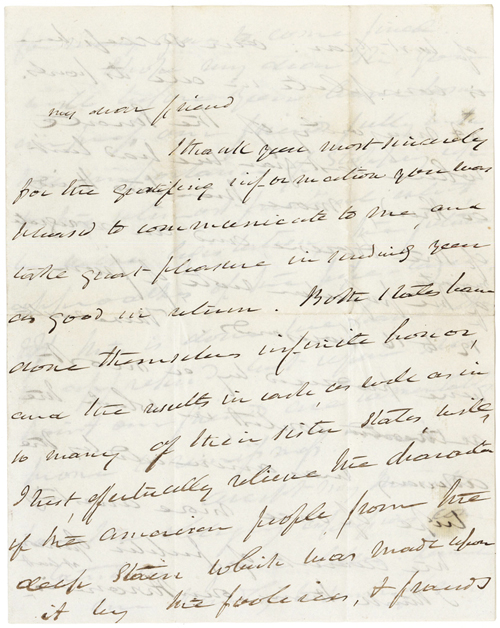 my dear friend
I thank you most sincerely
for the gratifying information you was
pleased to communicate to me, and
take great pleasure in sending you
as good in return. Both States have
done themselves infinite honor,
and the results in each, as well as in
so many of their sister States, will,
I trust, effectually relieve the character
of the american people from the
deep stain which was made upon
it by the fooleries, & frauds